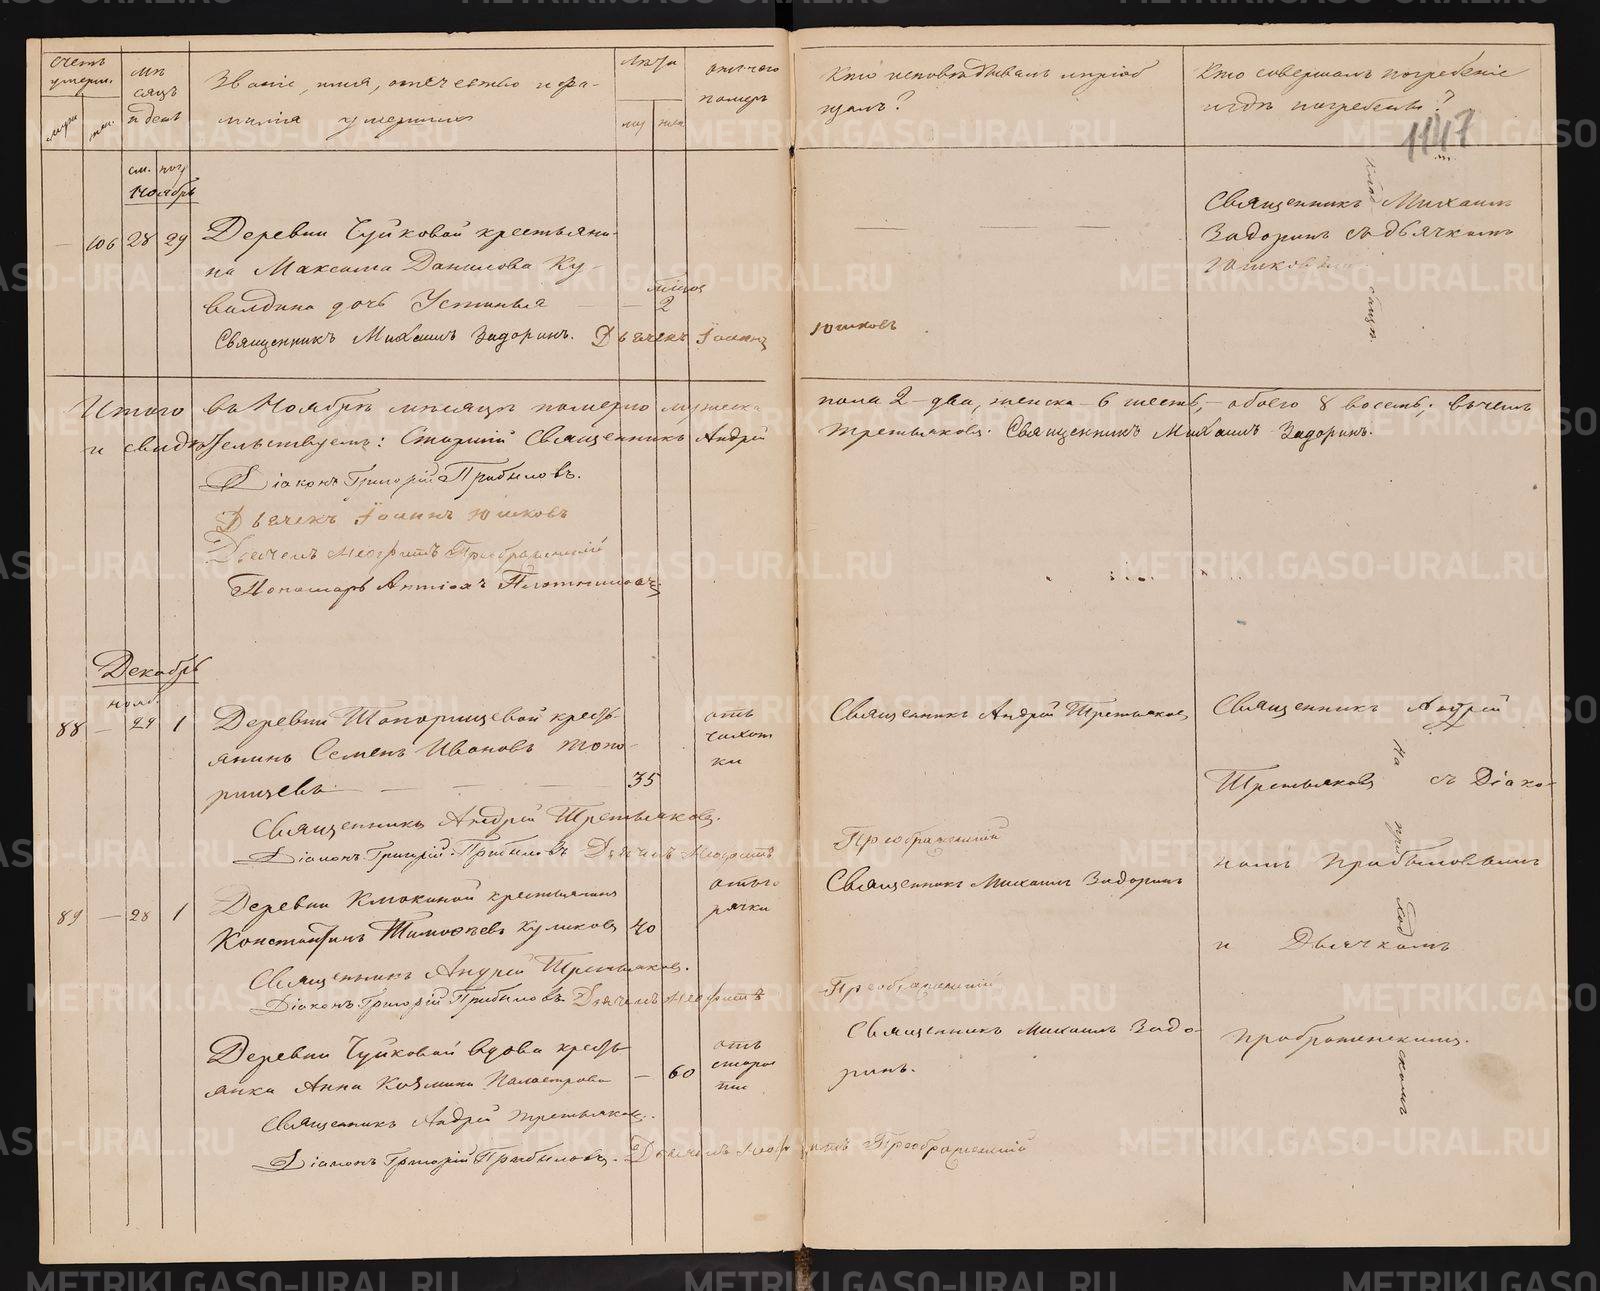 Счетъ умерш.
муж. жен.
Мѣсяцъ и день
см. пог.
Званіе, имя, отчество и фамилія умершихъ
Лѣта
муж. жен.
отъ чего померъ
Кто исповѣдывалъ и пріобщалъ?
Кто совершалъ погребеніе и гдѣ погребены?
1147
Ноябрь
106 28 29 Деревни Чуйковой крестьянина
Максима Данилова Ку
валдина дочь Устинья 2
Священникъ Михаилъ Задоринъ. Дьячекъ Іоаннъ Юшковъ
Священникъ Михаилъ
Задоринъ съ дьячкомъ
Юшковымъ
Итого въ Ноябрѣ мѣсяцѣ померло мужска пола 2 - два, женска - 6 шесть, - обоего 8 восемь; въ чемъ
и свидѣтельствуемъ: Старшій Священникъ Андрей Третьяковъ. Священникъ Михаилъ Задоринъ.
Діаконъ Григорій Прибыловъ.
Дьячекъ Іоаннъ Юшковъ
Дьячекъ Преображенскій
Пономарь
Декабрь
нояб.
88 — 29 1 Деревни Топорищевой кресть
янинъ Семенъ Ивановъ Топо
рищевъ 35
отъ
чахот
ки
Священникъ Андрей Третьяковъ
Священникъ Андрей
Третьяковъ съ Діако
номъ Прибыловымъ
и Дьячкомъ
Преображенскимъ.
На приходскомъ
Священникъ Андрей Третьяковъ.
Діаконъ Григорій Прибыловъ Дьячекъ Преображенскій
89 — 28 1 Деревни Клюкиной крестьянинъ
Константинъ Тимофѣевъ Куликовъ 40
отъ го
рячки
Священникъ Михаилъ Задоринъ
Священникъ Андрей Третьяковъ.
Діаконъ Григорій Прибыловъ Дьячекъ Преображенскій
Деревни Чуйковой вдова кресть
янка Анна Козмина — 60
отъ
старос
ти
Священникъ Михаилъ Задо
ринъ.
Священникъ Андрей Третьяковъ.
Діаконъ Григорій Прибыловъ. Дьячекъ Преображенскій
METRIKI.GASO-URAL.RU